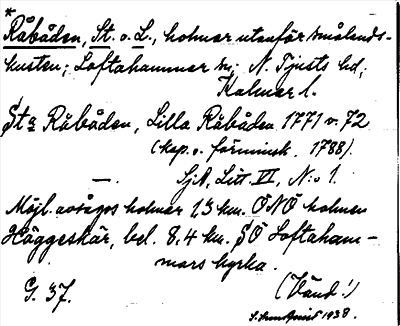 *
Råbåden, St. o. L., holmar utanför Smålands-
kusten; Loftahammar sn; N. Tjusts hd,
Kalmar l.
St:a Råbåden, Lilla Råbåden 1771 o. 72
(kop. o. förminsk. 1788).
— Sjk, Litt. VI, N:o 1.
Möjl. avsågos holmar 1,3 km. ONO holmen
Häggeskär, bel. 8,4 km. SO Loftaham-
mars kyrka.
G. 37. (Vänd!)
1938.